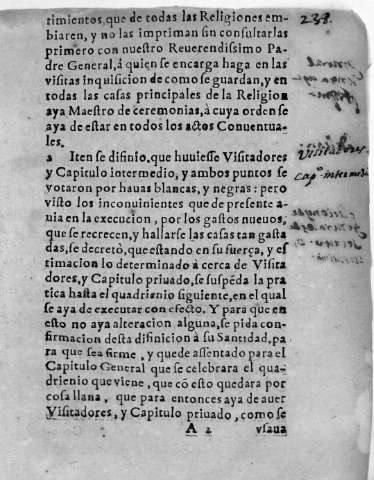 238.
timientos, que de todas las Religiones em-
biaren, y no las impriman sin consultarlas
primero con nuestro Reuerendissimo Pa-
dre General, à quien se encarga haga en las
visitas inquisicion de como se guardan, y en
todas las casas principales de la Religion
aya Maestro de ceremonias, à cuya orden se
aya de estar en todos los actos Conuentua-
les.
2 Iten se difinio, que huuiesse Visitadores
y Capitulo intermedio, y ambos puntos se
votaron por hauas blancas, y negras: pero
visto los inconuinientes que de presente a-
uia en la execucion, por los gastos nueuos,
que se recrecen, y hallarse las casas tan gasta
das, se decretò, que estando en su fuerça, y es
timacion lo determinado à cerca de Visita
dores, y Capitulo priuado, se suspēda la pra
tica hasta el quadrienio siguiente, en el qual
se aya de executar con efecto. Y para que en
esto no aya alteracion alguna, se pida con-
firmacion desta difinicion à su Santidad, pa
ra que sea firme, y quede assentado para el
Capitulo General que se celebrara el qua-
drienio que viene, que cō esto quedara por
cosa llana, que para entonces aya de auer
Visitadores, y Capitulo priuado, como se
A 2 vsaua
Visitadores.
capº intermedio